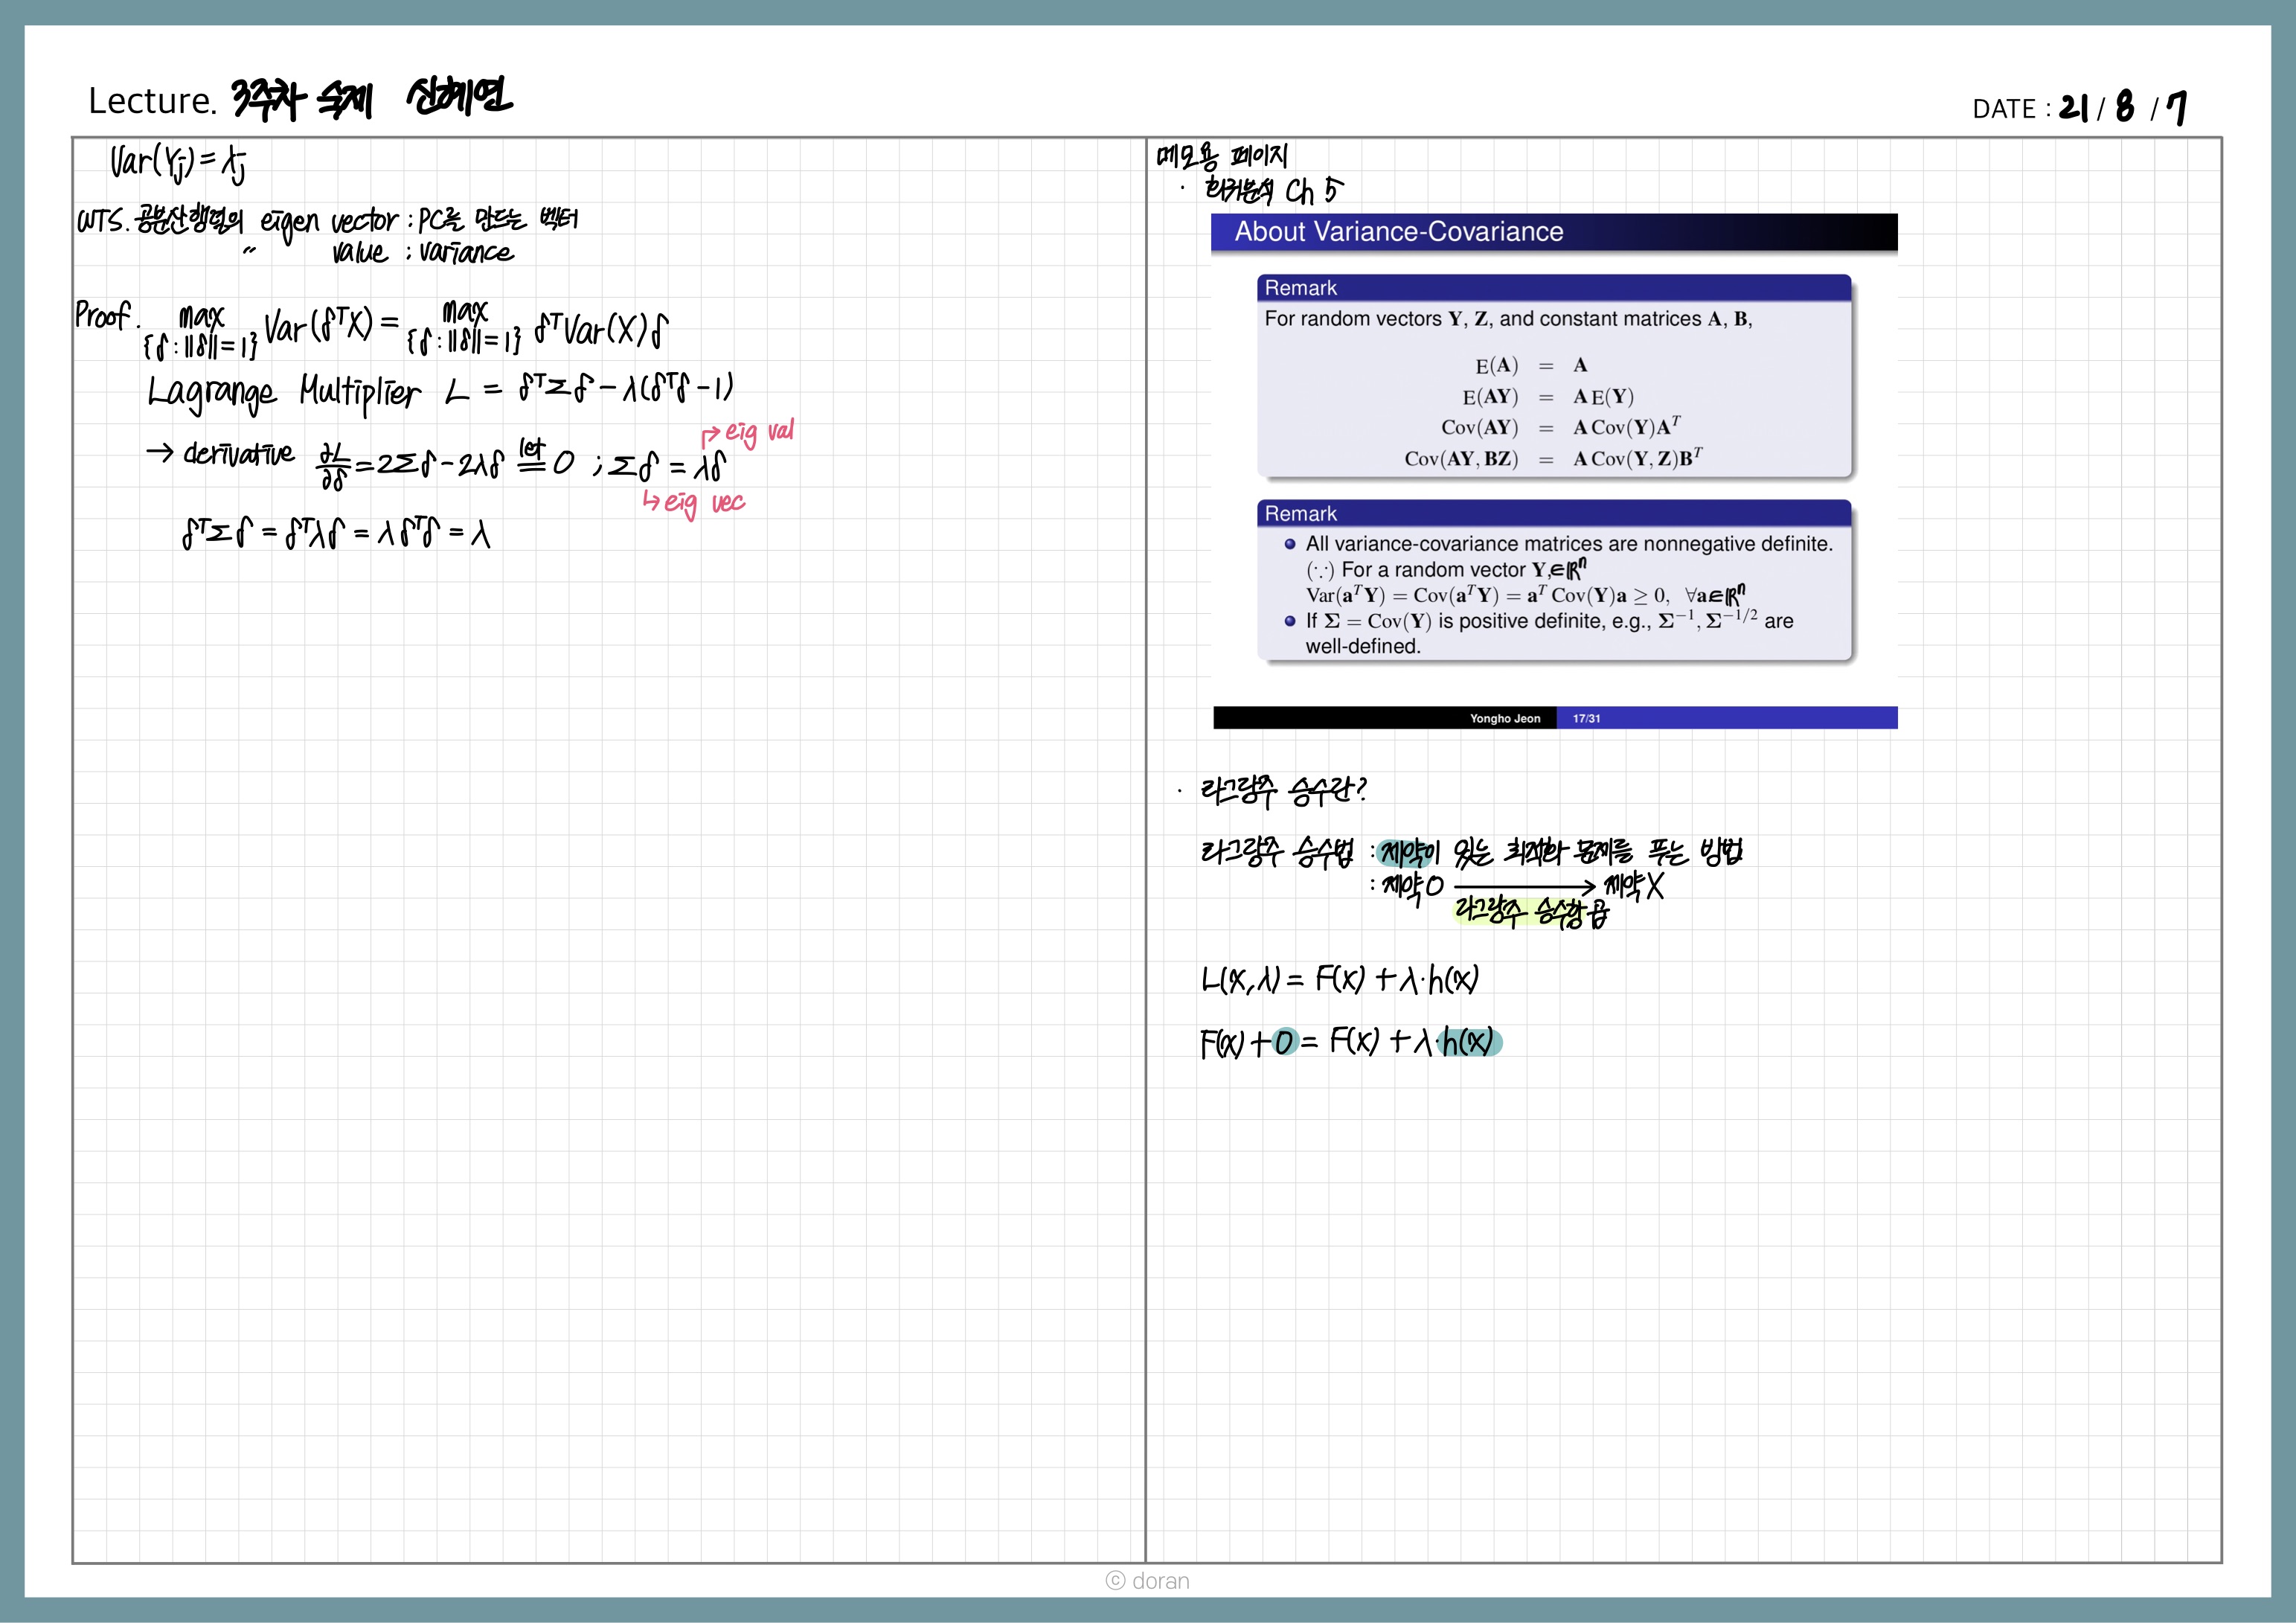 Lecture. 3주차 숙제 신혜연
DATE : 21 / 8 / 7
Var(Yj) = λj
WTS. 공분산행렬의 eigen vector : PC를 만드는 벡터
〃 value : variance
Proof. max{δ : ||δ|| = 1} Var(δᵀX) = max{δ : ||δ|| = 1} δᵀVar(X)δ
Lagrange Multiplier L = δᵀΣδ − λ(δᵀδ − 1)
→ derivative ∂L/∂δ = 2Σδ − 2λδ let= 0 ; Σδ = λδ
↱ eig val
↳ eig vec
δᵀΣδ = δᵀλδ = λδᵀδ = λ
메모용 페이지
· 회귀분석 Ch 5
About Variance-Covariance
Remark
For random vectors Y, Z, and constant matrices A, B,
E(A) = A
E(AY) = A E(Y)
Cov(AY) = A Cov(Y)Aᵀ
Cov(AY, BZ) = A Cov(Y, Z)Bᵀ
Remark
All variance-covariance matrices are nonnegative definite.
(∵) For a random vector Y,∈ℝⁿ
Var(aᵀY) = Cov(aᵀY) = aᵀ Cov(Y)a ≥ 0, ∀a∈ℝⁿ
If Σ = Cov(Y) is positive definite, e.g., Σ⁻¹, Σ⁻¹/² are
well-defined.
Yongho Jeon 17/31
· 라그랑주 승수란?
라그랑주 승수법 : 제약이 있는 최적화 문제를 푸는 방법
: 제약O → 제약X
라그랑주 승수항 곱
L(x, λ) = F(x) + λ·h(x)
F(x) + 0 = F(x) + λ·h(x)
ⓒ doran